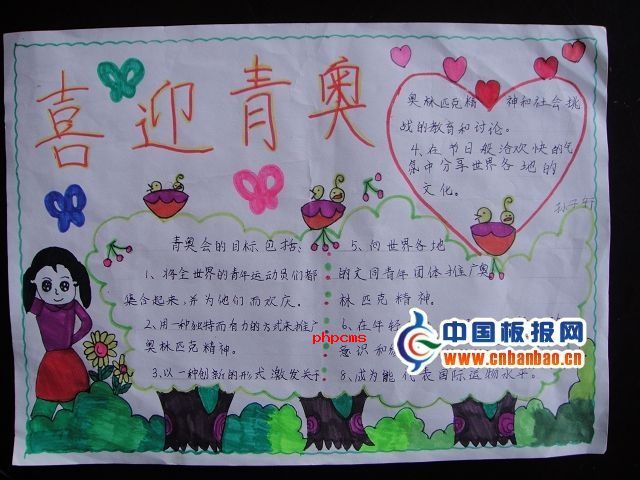 喜迎青奥
青奥会的目标包括:
1、将全世界的青年运动员们都
集合起来,并为他们而欢庆。
2、用一种独特而有力的方式来推广
奥林匹克精神。
3、以一种创新的形式激发关于
奥林匹克精神和社会挑
战的教育和讨论。
4、在节日般洽欢快的气
氛中分享世界各地的
文化。
5、向世界各地
的文同青年团体推广奥
林匹克精神。
6、在年轻
意识和
8、成为能代表国际运物水平。
phpcms
中国板报网
www.cnbanbao.cn